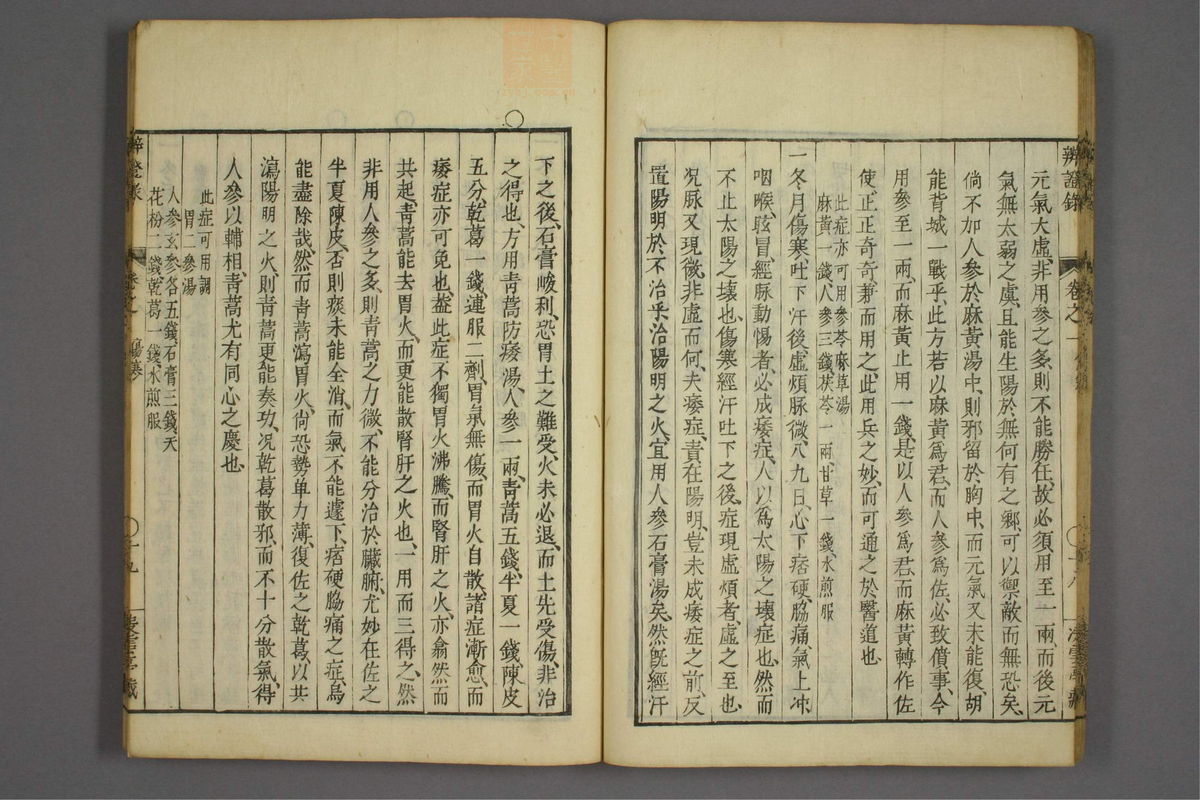 辨證錄
卷之一
元氣大虛、非用參之多、則不能勝任、故必須用至一兩、而後元
氣無太弱之虞、且能生陽於無何有之鄉、可以禦敵而無恐矣、
倘不加人參於麻黃湯中、則邪留於胸中、而元氣又未能復、胡
能背城一戰乎、此方若以麻黃爲君、而人參爲佐、必致僨事、今
用參至一兩、而麻黃止用一錢、是以人參爲君、而麻黃轉作佐
使、正正奇奇、兼而用之、此用兵之妙、而可通之於醫道也
此症亦可用參苓麻草湯
麻黃一錢、人參三錢、茯苓一兩、甘草一錢、水煎服
一冬月傷寒、吐下汗後、虛煩脉微、八九日、心下痞硬、脇痛、氣上冲
咽喉、眩冒、經脉動惕者、必成痿症、人以爲太陽之壞症也、然而
不止太陽之壞也、傷寒經汗吐下之後、症現虛煩者、虛之至也、
况脉又現微、非虛而何、夫痿症、責在陽明、豈未成痿症之前、反
置陽明於不治乎、治陽明之火、宜用人參石膏湯矣、然既經汗
下之後、石膏峻利、恐胃土之難受、火未必退、而土先受傷、非治
之得也、方用青蒿防痿湯、人參一兩、青蒿五錢、半夏一錢、陳皮
五分、乾葛一錢、連服二劑、胃氣無傷、而胃火自散、諸症漸愈、而
痿症亦可免也、葢此症不獨胃火沸騰、而腎肝之火、亦翕然而
共起、青蒿能去胃火、而更能散腎肝之火也、一用而三得之、然
非用人參之多、則青蒿之力微、不能分治於臟腑、尤妙在佐之
半夏陳皮、否則痰未能全消、而氣不能遽下、痞硬脇痛之症、烏
能盡除哉、然而青蒿瀉胃火、尚恐勢单力薄、復佐之乾葛、以共
瀉陽明之火、則青蒿更能奏功、况乾葛散邪、而不十分散氣、得
人參以輔相、青蒿尤有同心之慶也、
此症可用調
胃二參湯
人參玄參各五錢、石膏三錢、天
花粉二錢、乾葛一錢、水煎服
傷寒